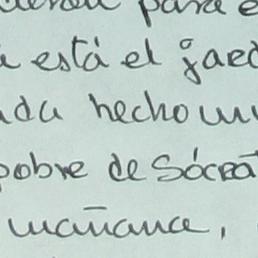 para e
está el jard
nda hecho un
pobre de Sócra
mañana,